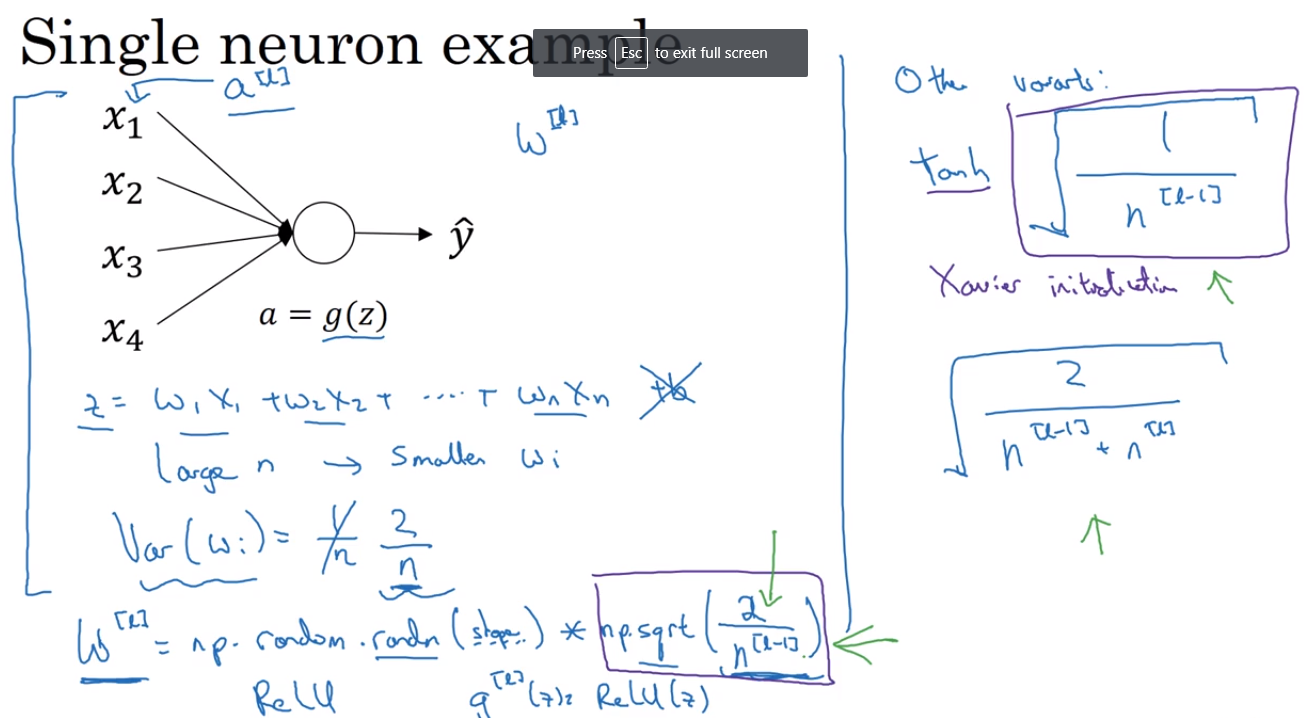 Single neuron example
Press Esc to exit full screen
a^[l]
x₁
x₂
x₃
x₄
ŷ
a = g(z)
w^[l]
z = w₁x₁ + w₂x₂ + .... + wₙxₙ +b
Large n → Smaller wᵢ
Var(wᵢ) = 1/n 2/n
W^[l] = np.random.randn(shape) * np.sqrt(2/n^[l-1])
ReLU g^[l](z) = ReLU(z)
Other variants:
tanh √(1/n^[l-1])
Xavier initialization
√(2/(n^[l-1] + n^[l]))